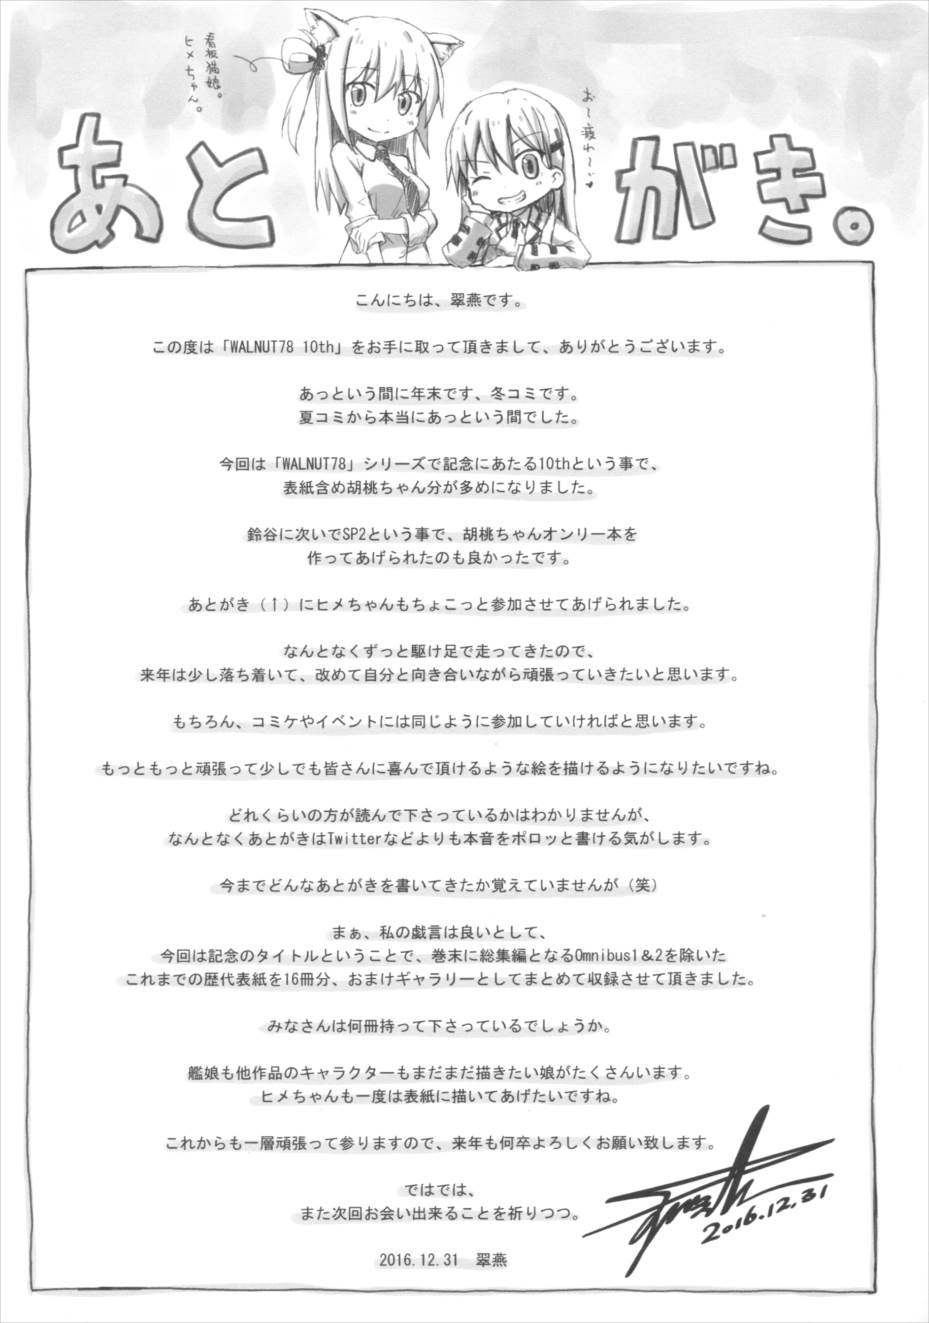 看板猫娘。
ヒメちゃん。
お〜疲れ〜い♥
あとがき。
こんにちは、翠燕です。
この度は「WALNUT78 10th」をお手に取って頂きまして、ありがとうございます。
あっという間に年末です、冬コミです。
夏コミから本当にあっという間でした。
今回は「WALNUT78」シリーズで記念にあたる10thという事で、
表紙含め胡桃ちゃん分が多めになりました。
鈴谷に次いでSP2という事で、胡桃ちゃんオンリー本を
作ってあげられたのも良かったです。
あとがき（↑）にヒメちゃんもちょこっと参加させてあげられました。
なんとなくずっと駆け足で走ってきたので、
来年は少し落ち着いて、改めて自分と向き合いながら頑張っていきたいと思います。
もちろん、コミケやイベントには同じように参加していければと思います。
もっともっと頑張って少しでも皆さんに喜んで頂けるような絵を描けるようになりたいですね。
どれくらいの方が読んで下さっているかはわかりませんが、
なんとなくあとがきはTwitterなどよりも本音をポロッと書ける気がします。
今までどんなあとがきを書いてきたか覚えていませんが（笑）
まぁ、私の戯言は良いとして、
今回は記念のタイトルということで、巻末に総集編となるOmnibus1＆2を除いた
これまでの歴代表紙を16冊分、おまけギャラリーとしてまとめて収録させて頂きました。
みなさんは何冊持って下さっているでしょうか。
艦娘も他作品のキャラクターもまだまだ描きたい娘がたくさんいます。
ヒメちゃんも一度は表紙に描いてあげたいですね。
これからも一層頑張って参りますので、来年も何卒よろしくお願い致します。
ではでは、
また次回お会い出来ることを祈りつつ。
2016.12.31
2016.12.31　翠燕